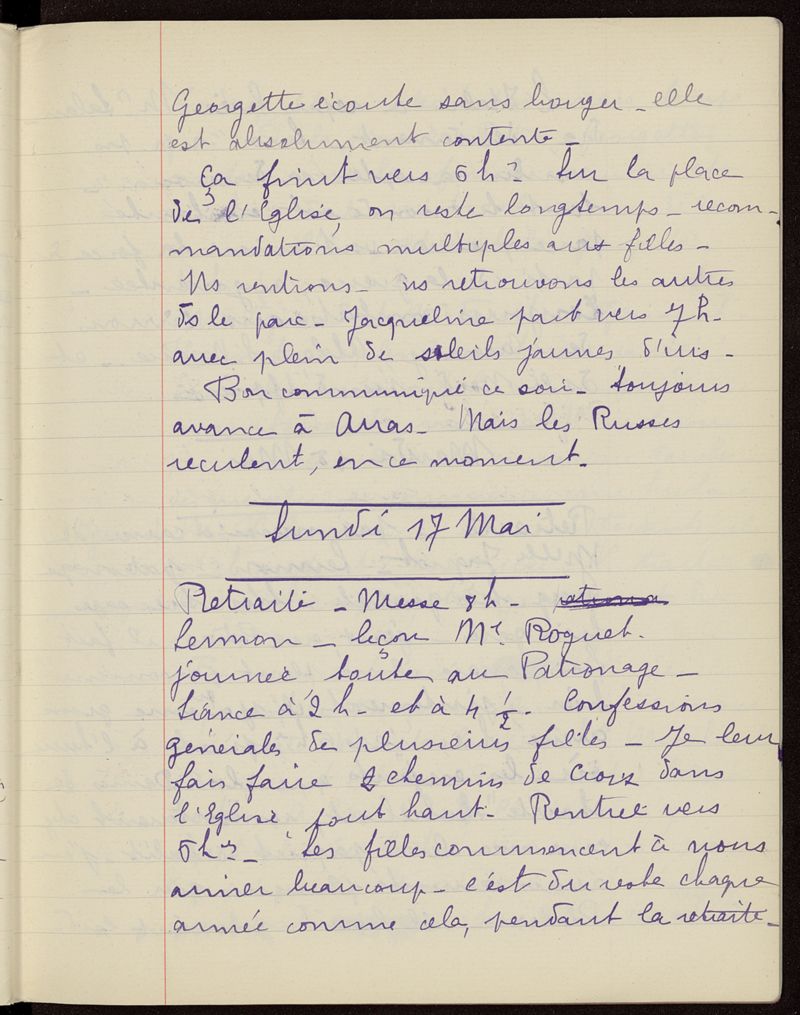 Georgette écoute sans bouger - elle
est absolument contente -
Ça finit vers 6 hres. Sur la place
de l'Eglise, on reste longtemps - recom-
mandations multiples aux filles -
Ns rentrons - ns retrouvons les autres
ds le parc - Jacqueline part vers 7 h -
avec plein de soleils jaunes d'iris -
Bon communiqué ce soir - toujours
avance à Arras - Mais les Russes
reculent, en ce moment.
Lundi 17 Mai
Retraite - Messe 8 h -
Sermon - leçon Mr. Roguet.
journée toute au Patronage -
Séance à 2 h - et à 4 ½ - Confessions
générales de plusieurs filles - Je leur
fais faire 2 chemins de Croix dans
l'Eglise tout haut - Rentrée vers
6 hres - Les filles commencent à nous
aimer beaucoup - c'est du reste chaque
année comme cela, pendant la retraite -